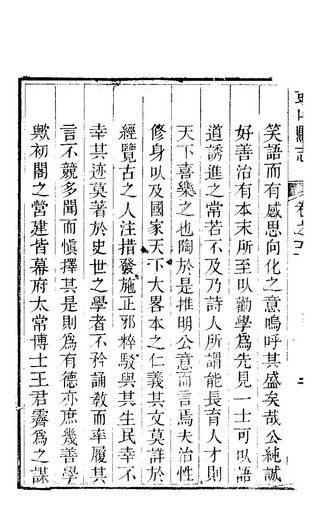 笑語而有感思向化之意嗚呼其盛矣哉公純誠
好善治有本末所至以勸學爲先見一士可以語
道誘進之常若不及乃詩人所謂能長育人才則
天下喜樂之也陶於是推明公意而言焉夫治性
修身以及國家天下大畧本之仁義其文莫詳於
經覽古之人注措發施正邪粹駁與其生民幸不
幸其迹莫著於史世之學者不矜誦敎而率履其
言不競多聞而愼擇其是則爲有德亦庶幾善學
歟初閣之營建皆幕府太常博士王君霽爲之謀
縣志
卷之